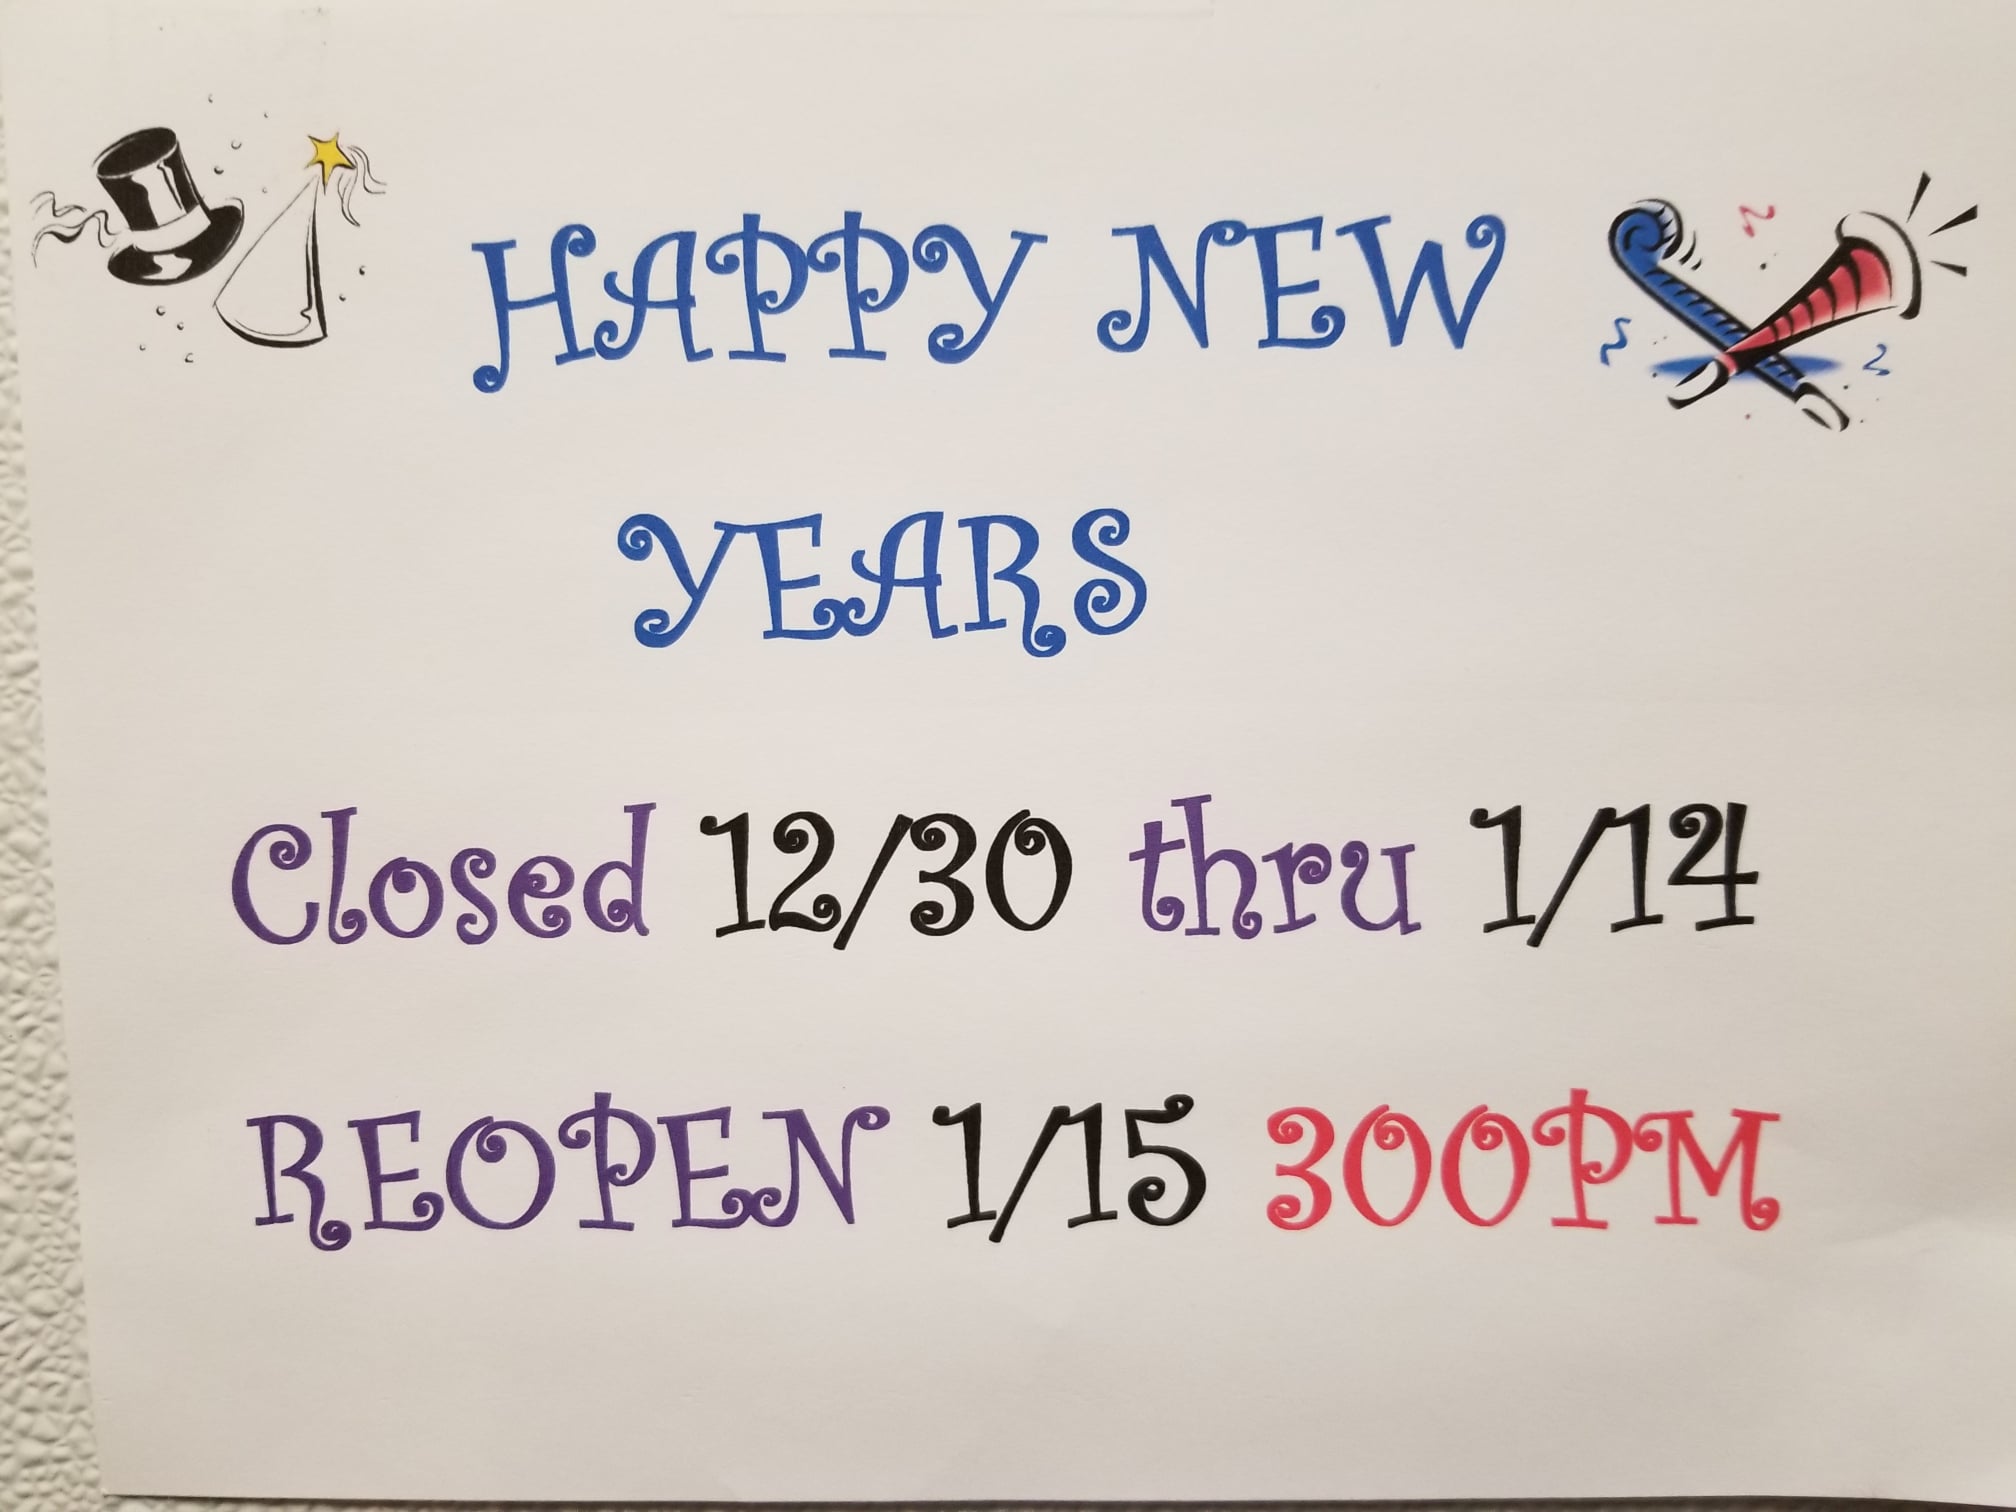 HAPPY NEW
YEARS
Closed 12/30 thru 1/14
REOPEN 1/15 300PM